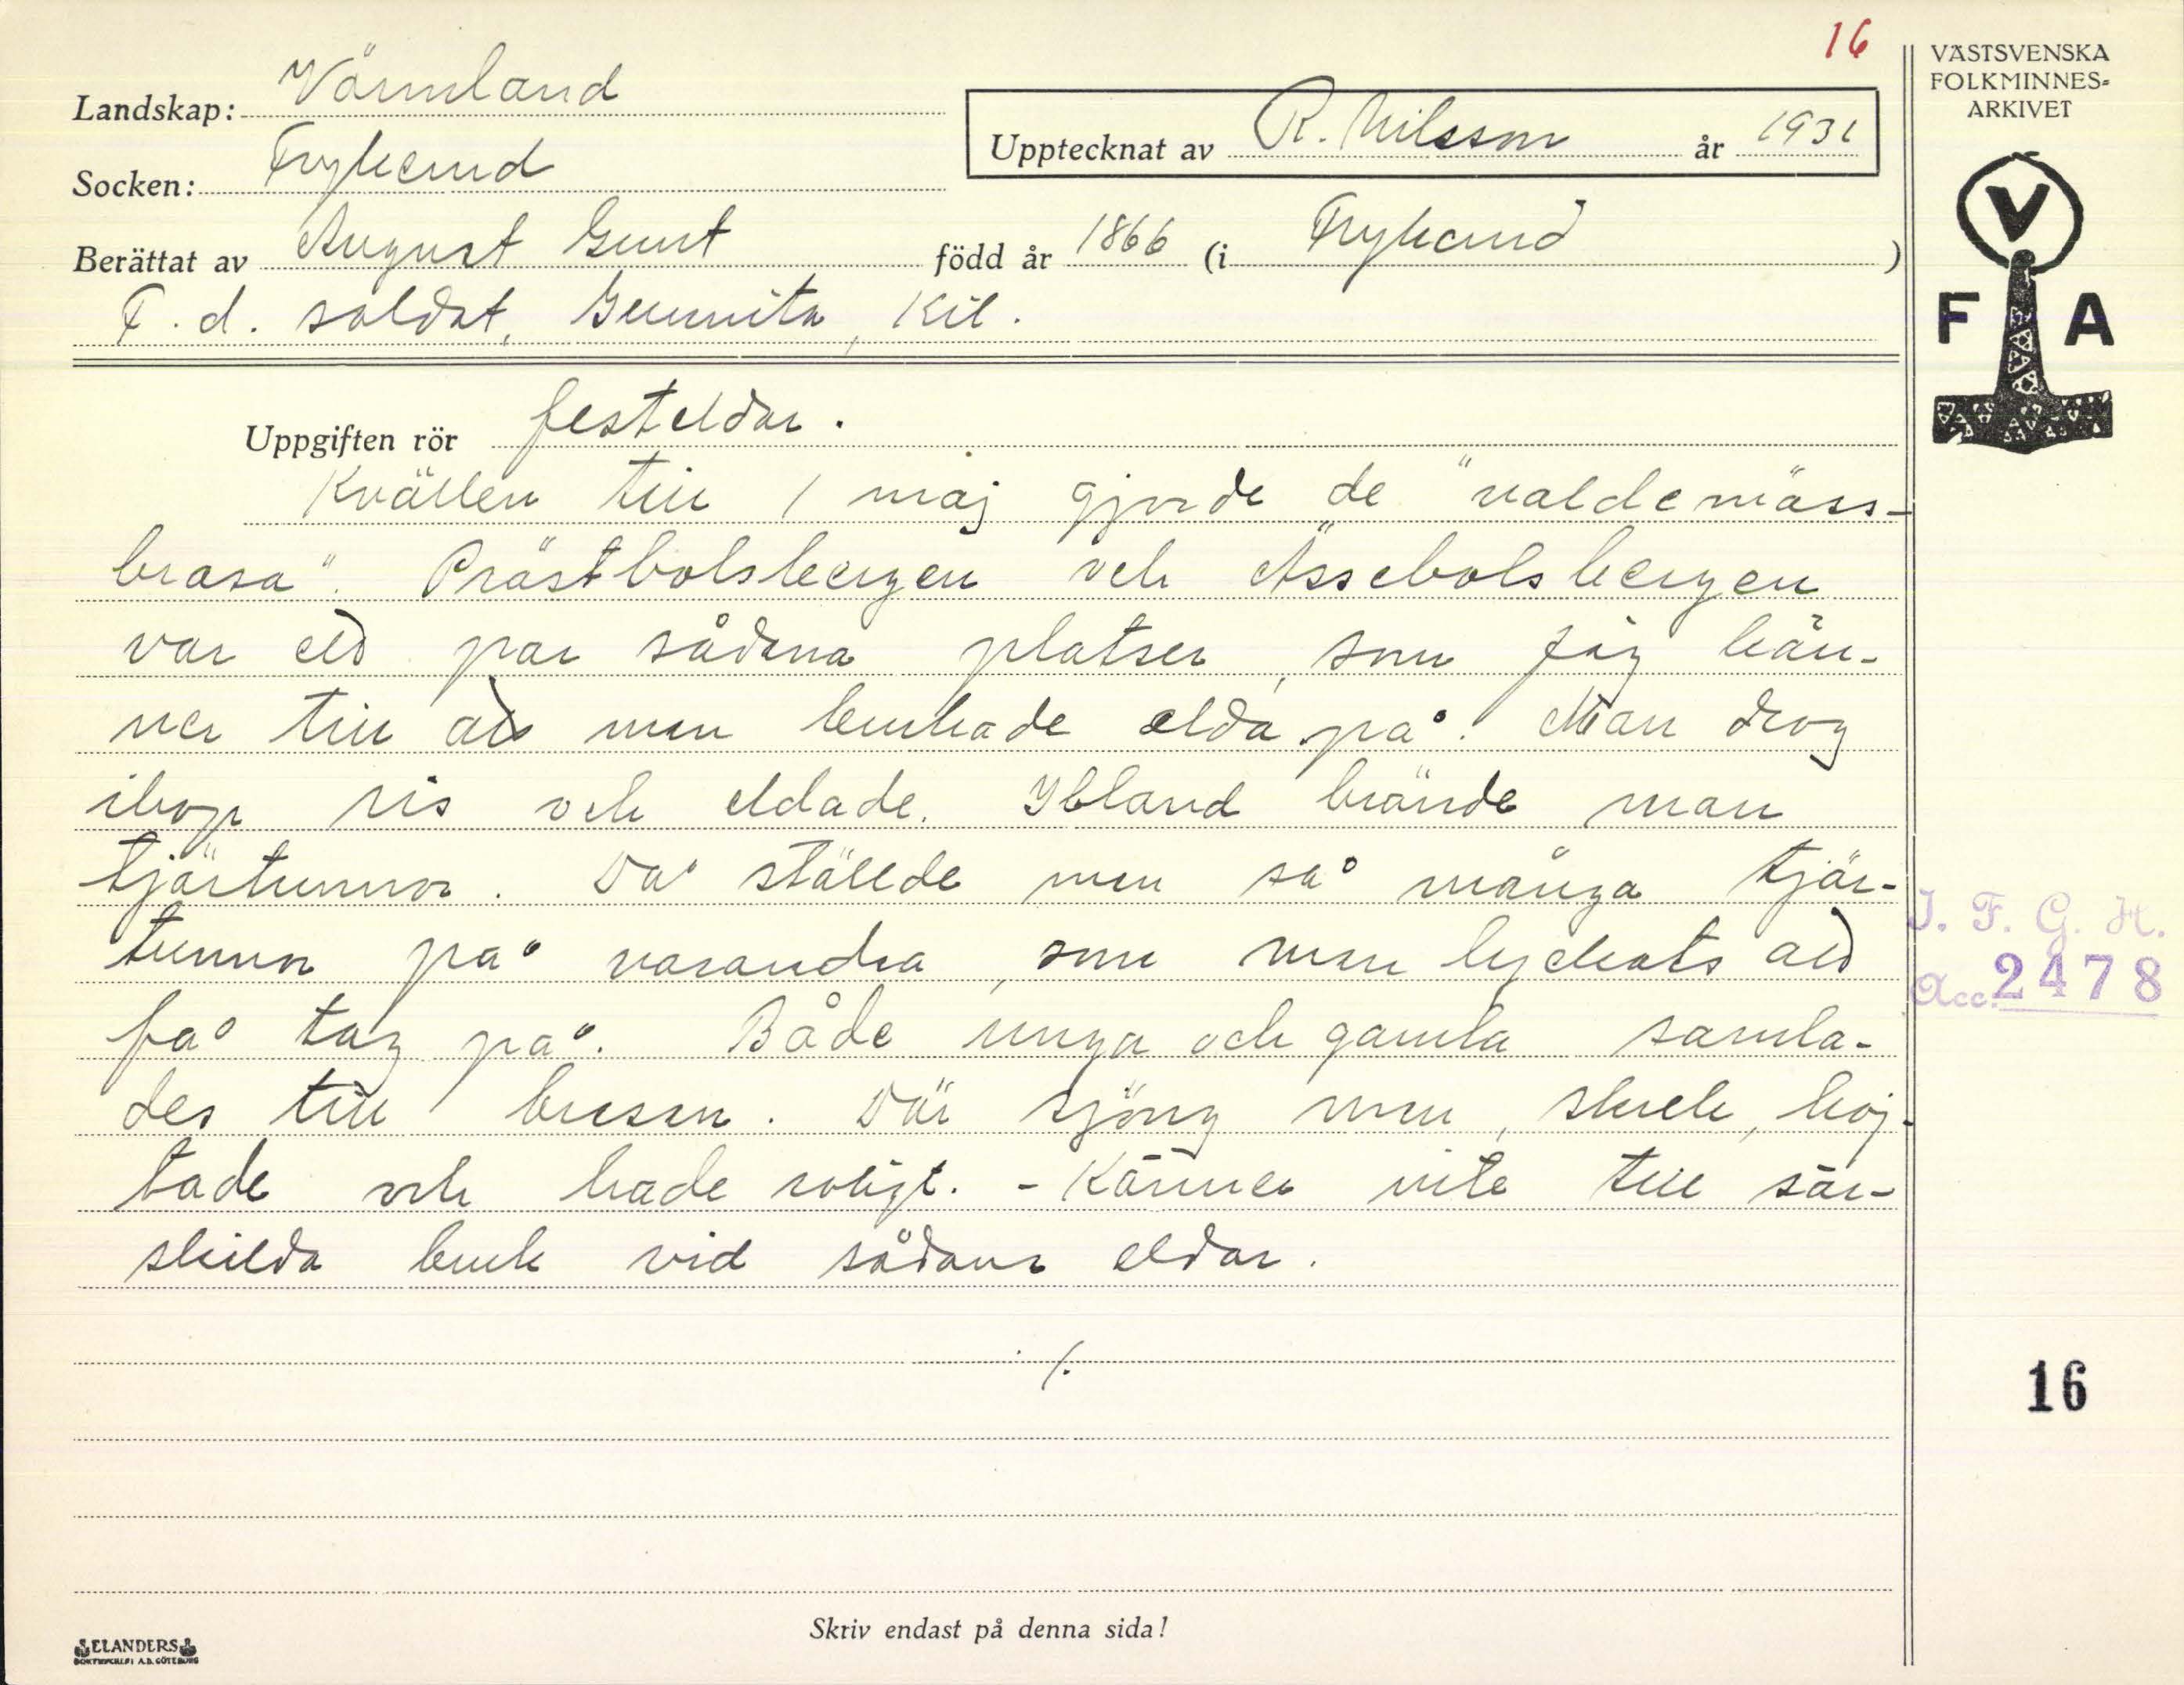 16
VÄSTSVENSKA
FOLKMINNES-
ARKIVET
Landskap: Värmland
Upptecknat av R. Nilsson år 1931
Socken: Frykerud
Berättat av August Gunt född år 1866 (i Frykerud)
F.d. soldat, Kil.
V
F A
Uppgiften rör festeldar.
Kvällen till 1 maj gjorde de "valdemäss-
brasa". Prästbolsbergen och Åssebolsbergen
var ett par sådana platser, som jag kän-
ner till att man brukade elda på. Man drog
ihop ris och eldade. Ibland brände man
tjärtunnor. Då ställde man så många tjär-
tunnor på varandra, som man lyckats att
få tag på. Både unga och gamla samla-
des till brasan. Där sjöng man, skrek, hoj-
tade och hade roligt. - Känner inte till sär-
skilda bruk vid sådana eldar.
/.
I. F. G. H.
Acc. 2478
16
Skriv endast på denna sida!
ELANDERS
BOKTRYCKERI A.B. GÖTEBORG